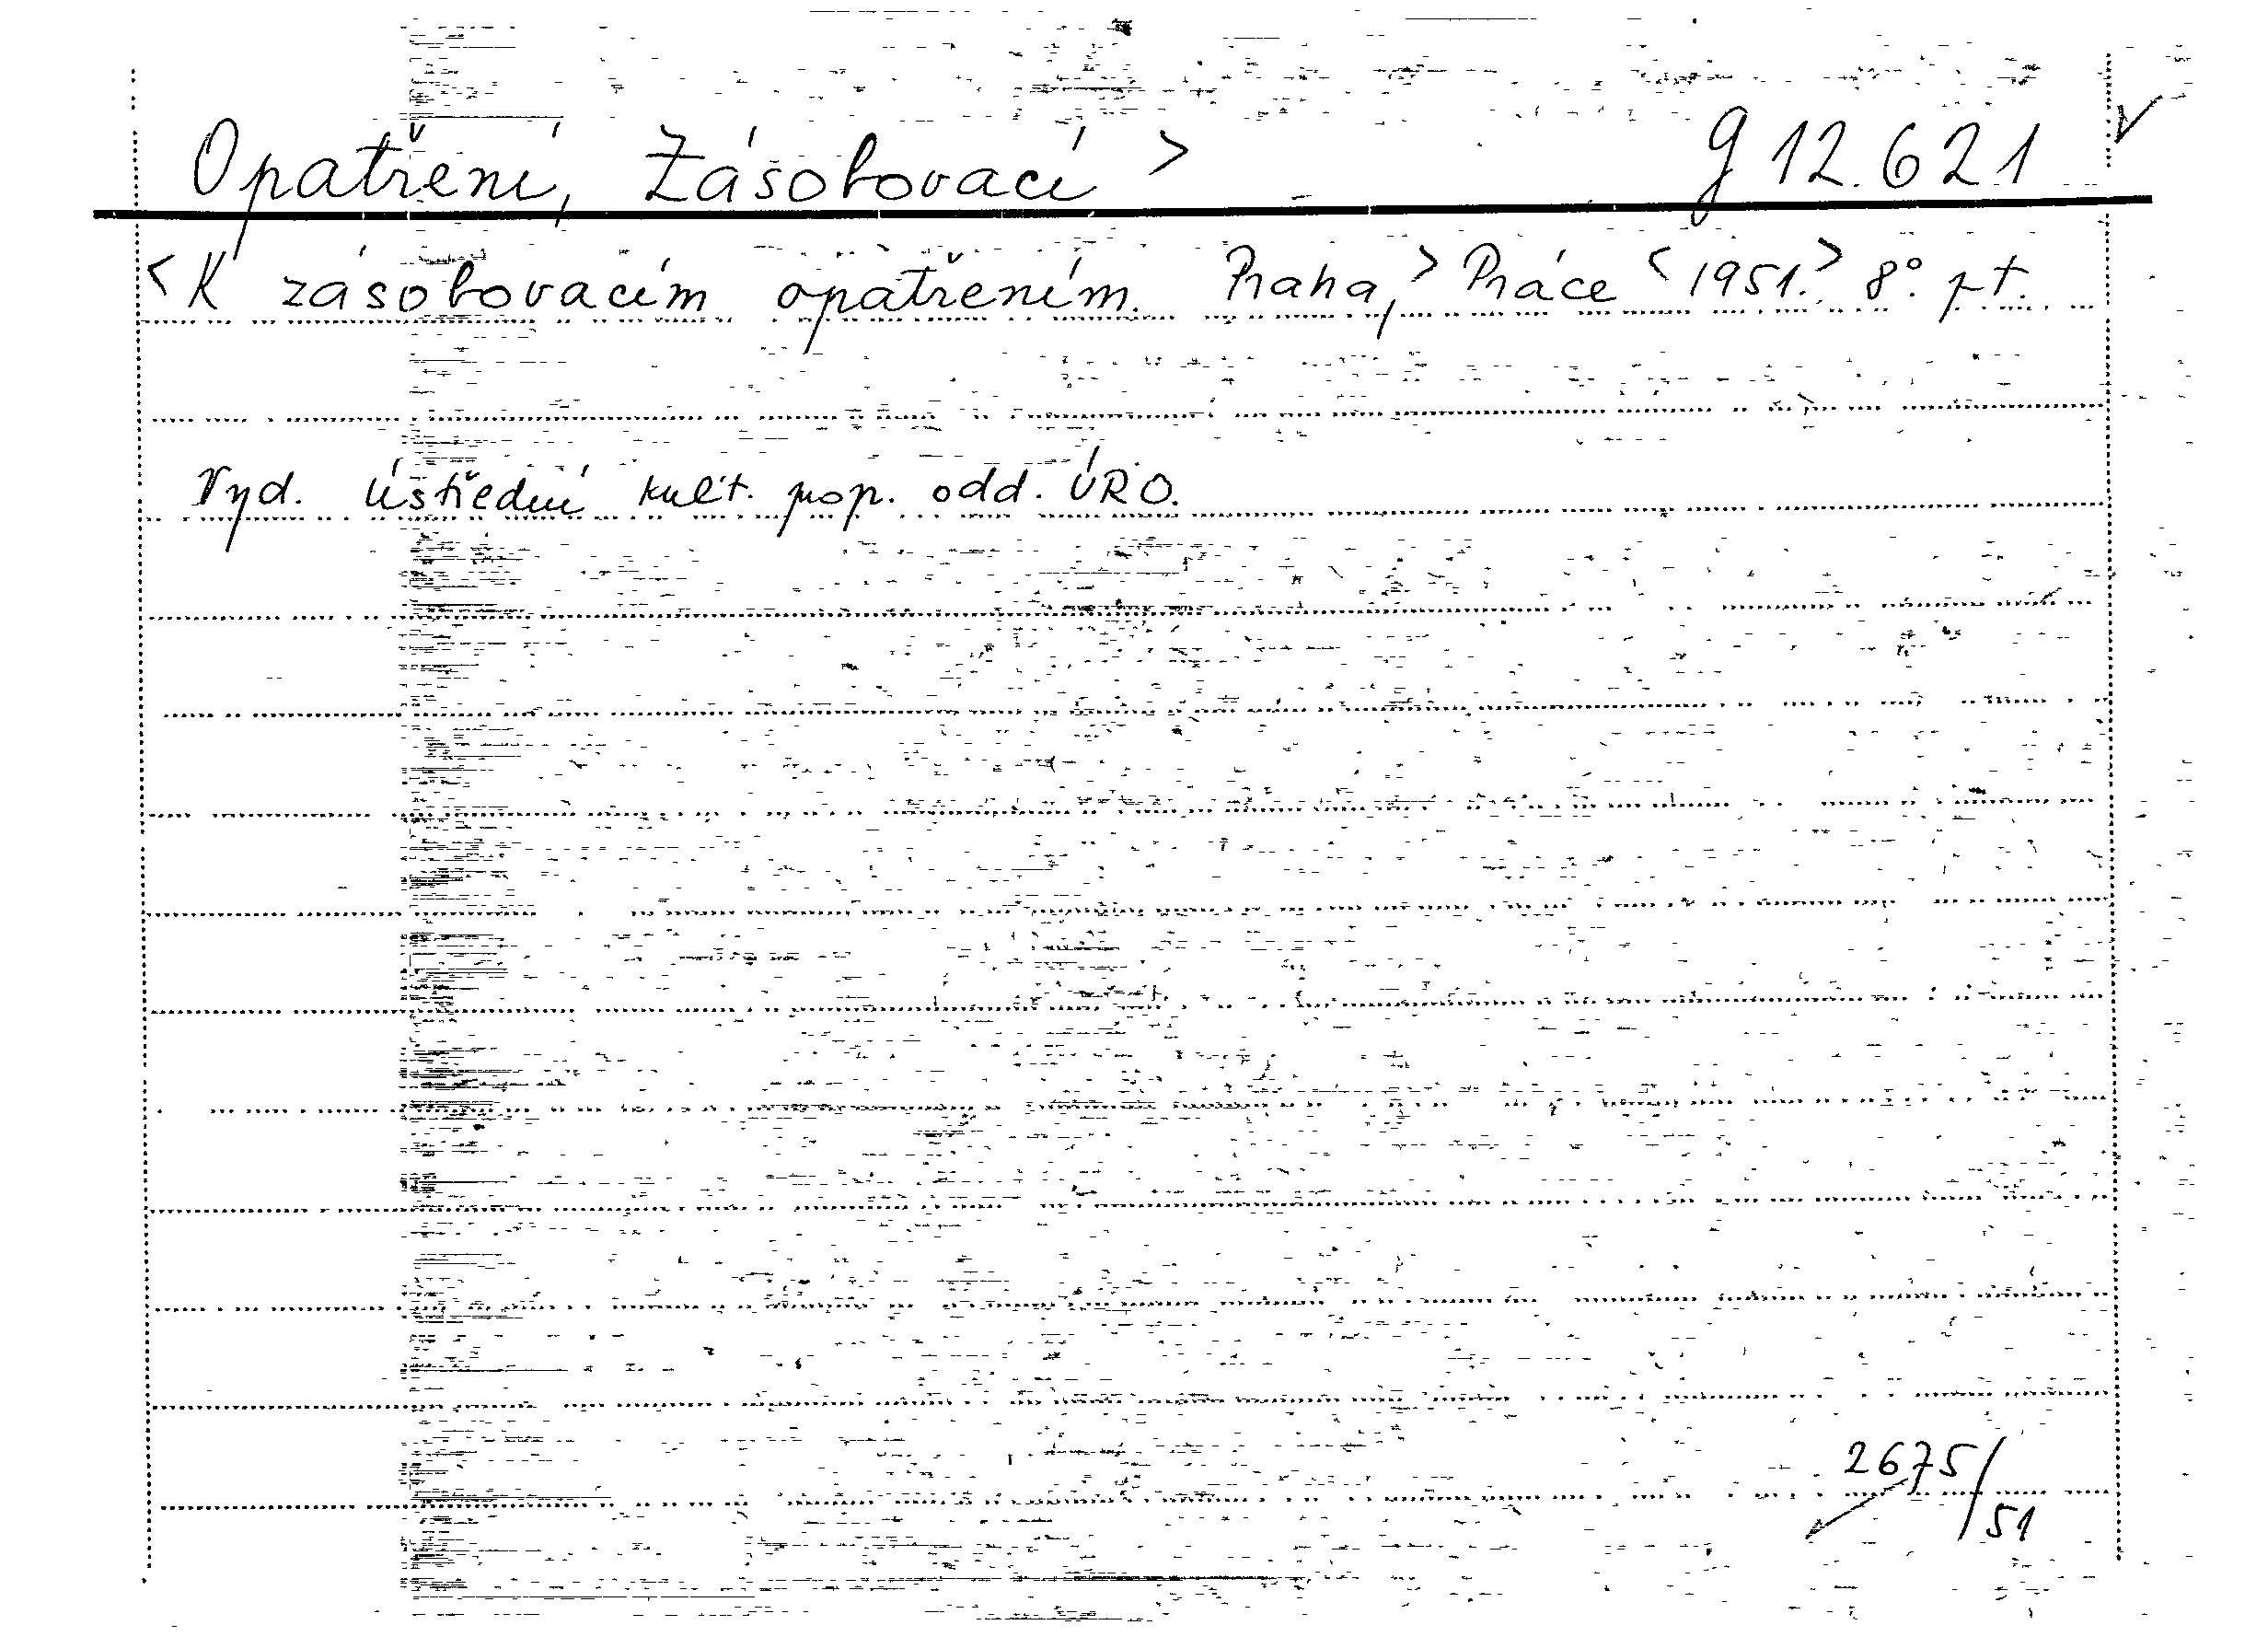 Opatření, Zásobovací > g 12.621
<K zásobovacím opatřením. Praha,> Práce <1951.> 8°. pt.
Vyd. Ústřední kult. prop. odd. ÚRO.
2675/51